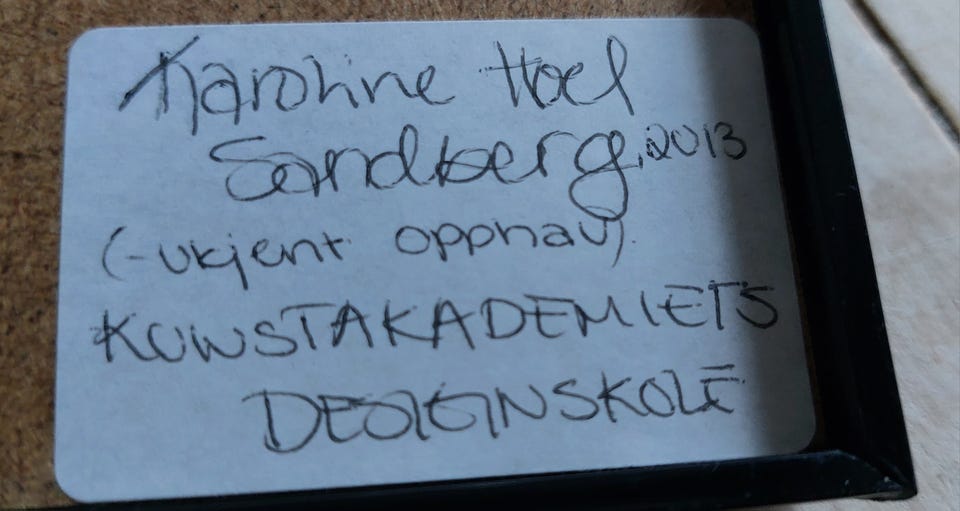 Karoline Hoel
Sandberg, 2013
(-ukjent opphav).
KUNSTAKADEMIETS
DESIGNSKOLE